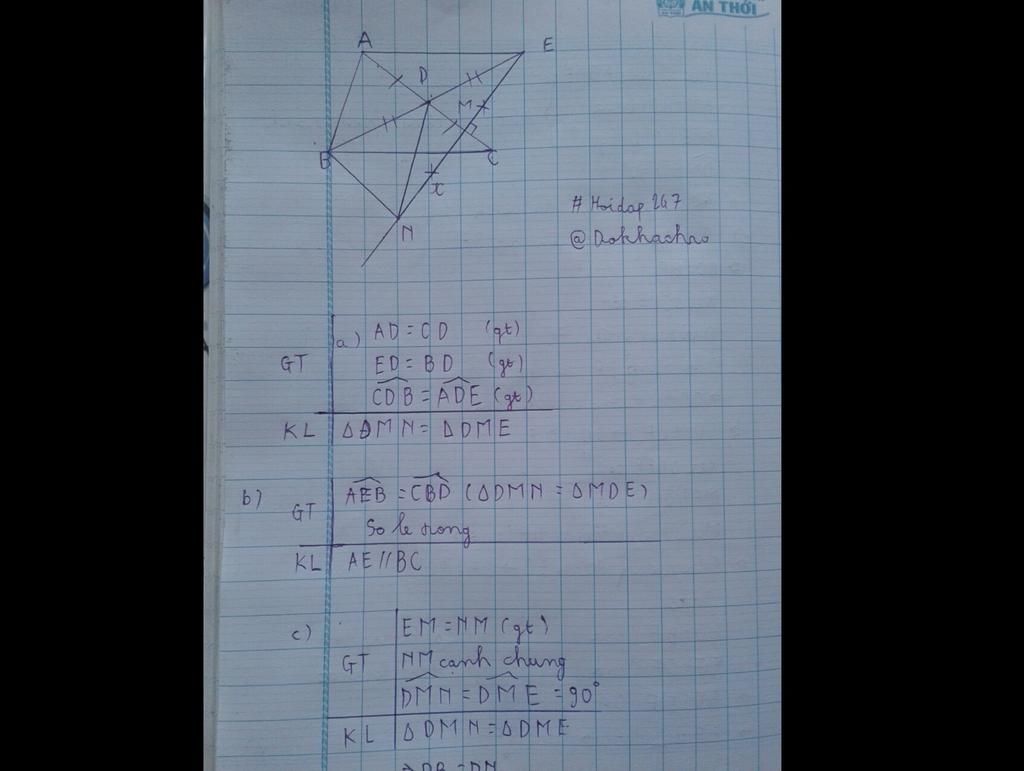 AN THỚI
A
E
D
M
B
C
x
N
# Hoidap 247
a) AD = CD (gt)
GT
ED = BD (gt)
CDB = ADE (gt)
KL
ΔDMN = ΔDME
b)
GT
AEB = CBD (ΔDMN = ΔMDE)
So le trong
KL
AE // BC
c)
EM = NM (gt)
GT
NM cạnh chung
DMN = DME = 90°
KL
ΔDMN = ΔDME